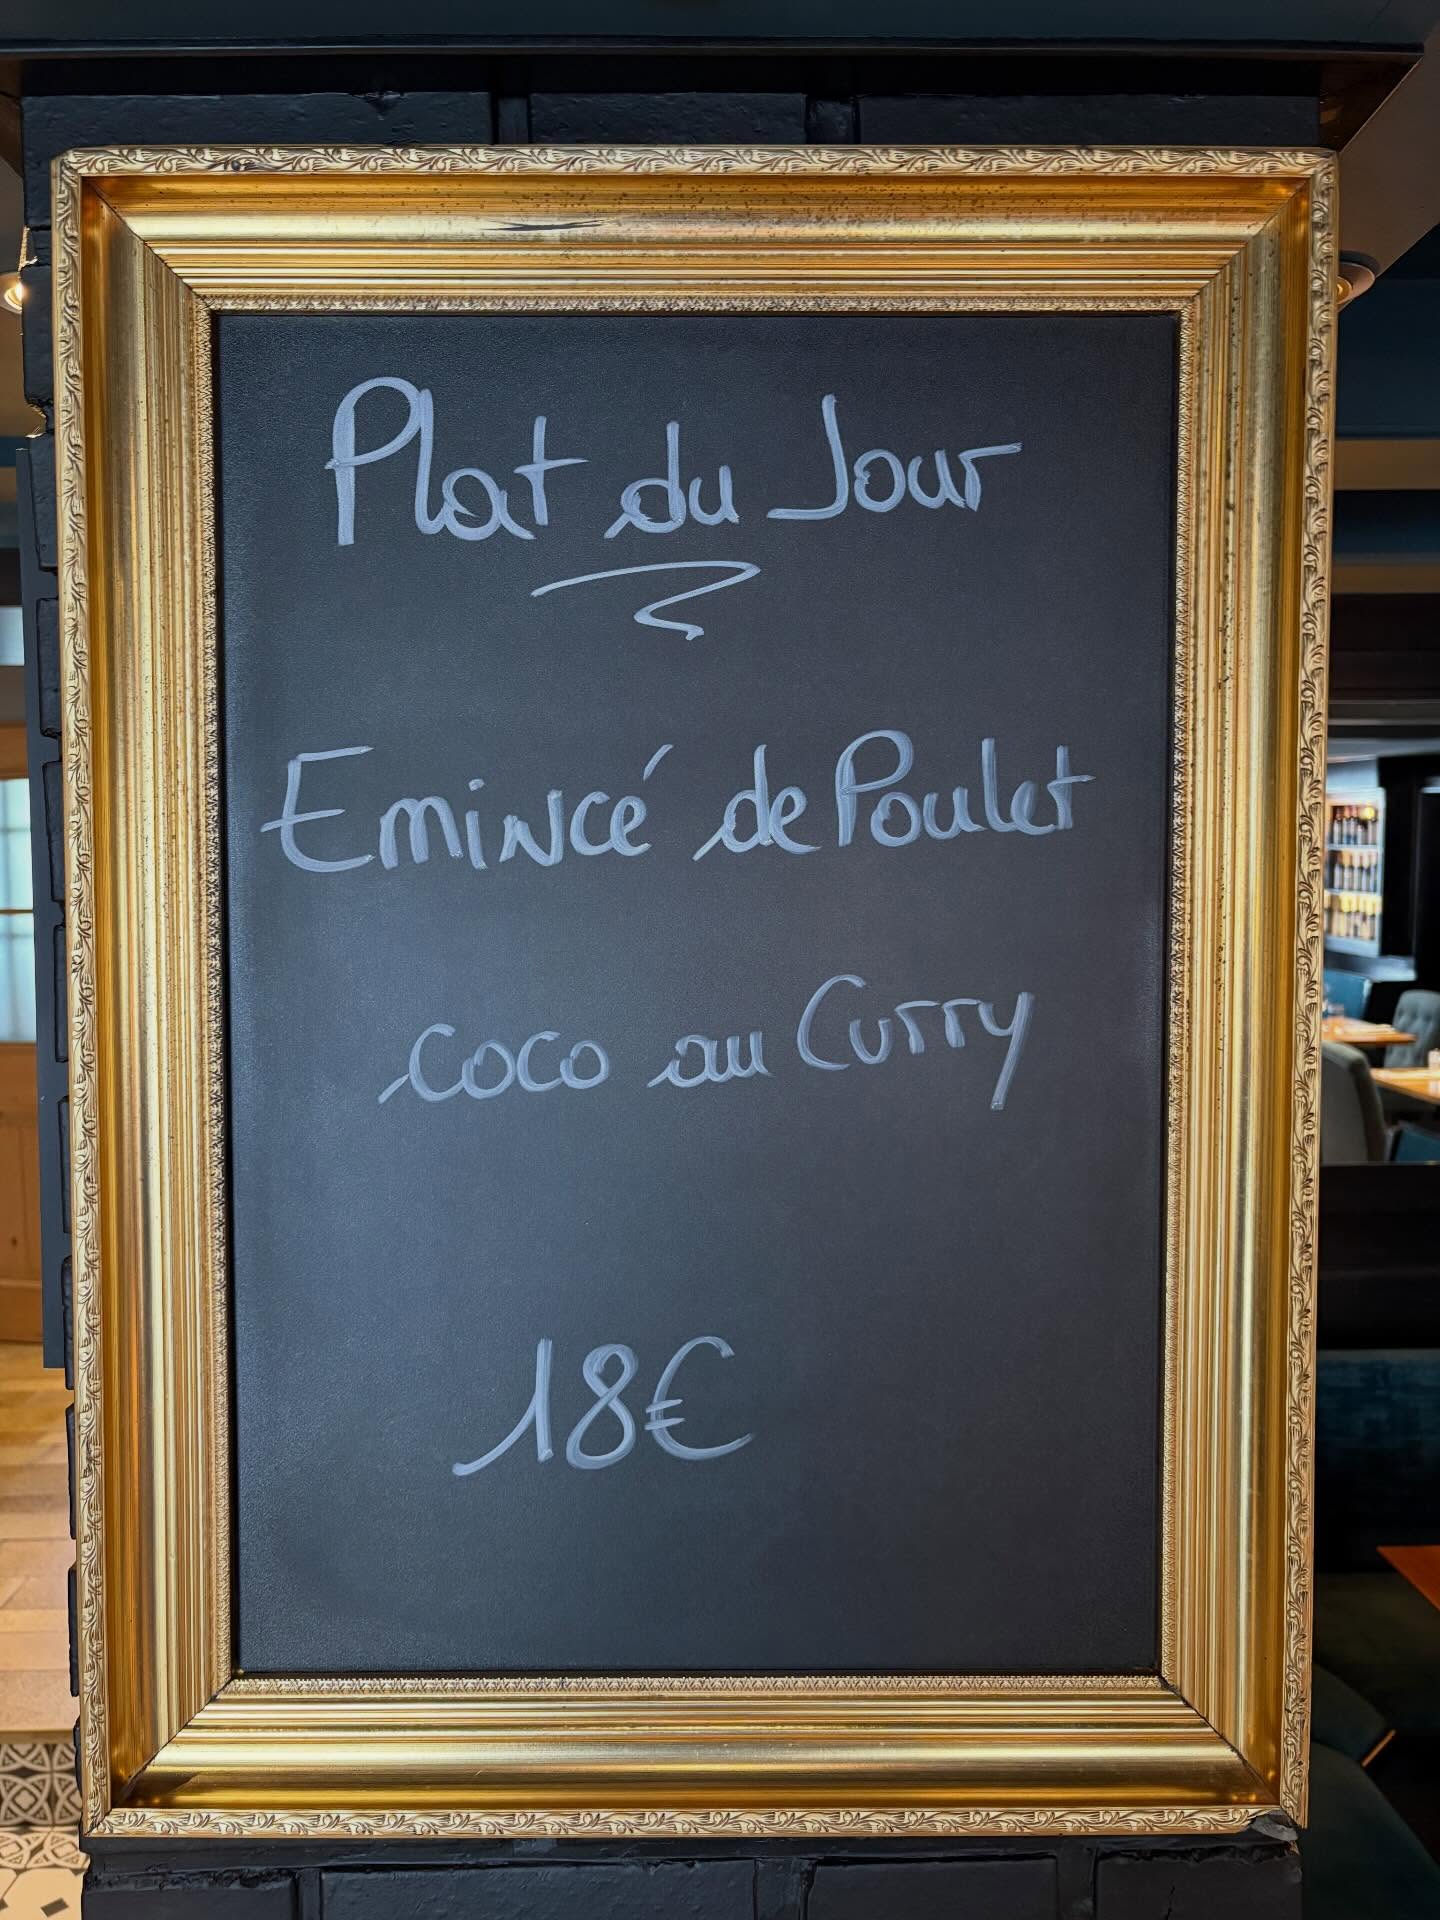 Plat du Jour
Emincé de Poulet
coco au Curry
18€